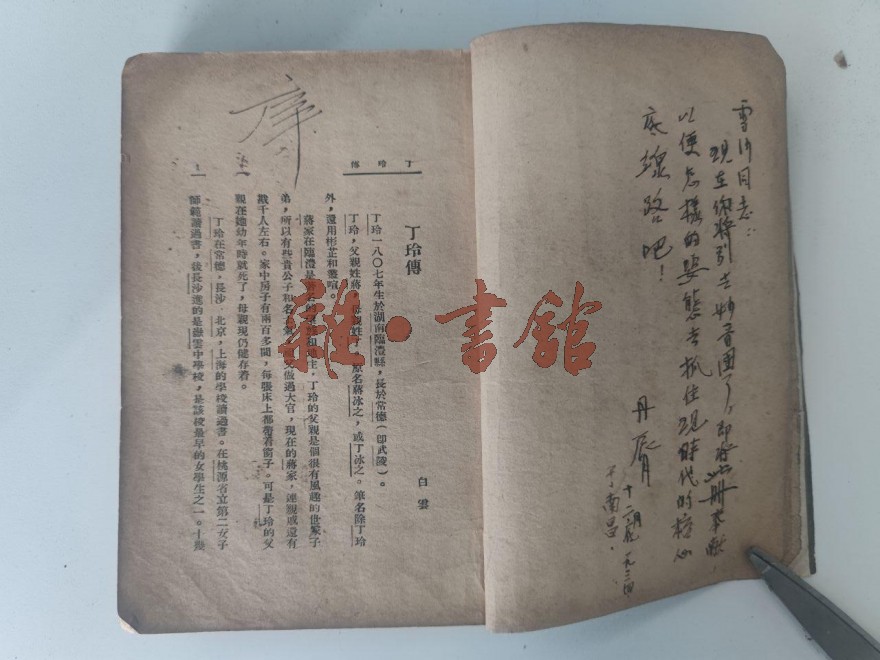 雪沙同志：
以便怎樣的姿態去抓住現時代的核心
底線路吧！
于南昌．
序
丁玲傳
丁玲傳
白雲
丁玲一八〇七年生於湖南臨澧縣，長於常德（卽武陵）。
丁玲，父親姓蔣，母親姓 原名蔣冰之，或丁冰之。筆名除丁玲
外，還用彬芷和叢喧。
蔣家在臨澧是 丁玲的父親是個很有風趣的世家子
弟，所以有些貴公子和名士氣 做過大官，現在的蔣家，連親戚還有
戴千人左右。家中房子有兩百多間，每張床上都帶着窗子。可是丁玲的父
親在她幼年時就死了，母親現仍健存着。
丁玲在常德，長沙，北京，上海的學校讀過書。在桃源省立第二女子
師範讀過書，後長沙進的是嶽雲中學校，是該校最早的女學生之一。十幾
一
雜·書館